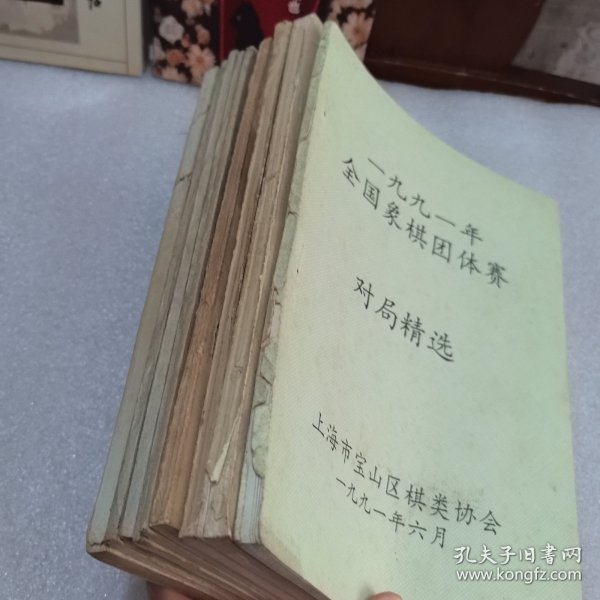 一九九一年
全国象棋团体赛
对局精选
上海市宝山区棋类协会
一九九一年六月
孔夫子旧书网
www.kongfz.com